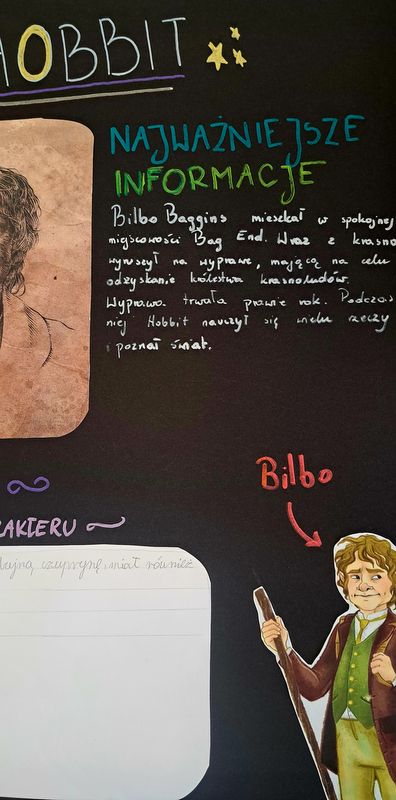 HOBBIT
NAJWAŻNIEJSZE
INFORMACJE
Bilbo Baggins mieszkał w spokojnej
miejscowości Bag End. Wraz z krasno
wyruszył na wyprawę, mającą na celu
odzyskanie królestwa krasnoludów.
Wyprawa trwała prawie rok. Podczas
niej Hobbit nauczył się wielu rzeczy
i poznał świat.
Bilbo
AKTERU
bujną czuprynę, miał również